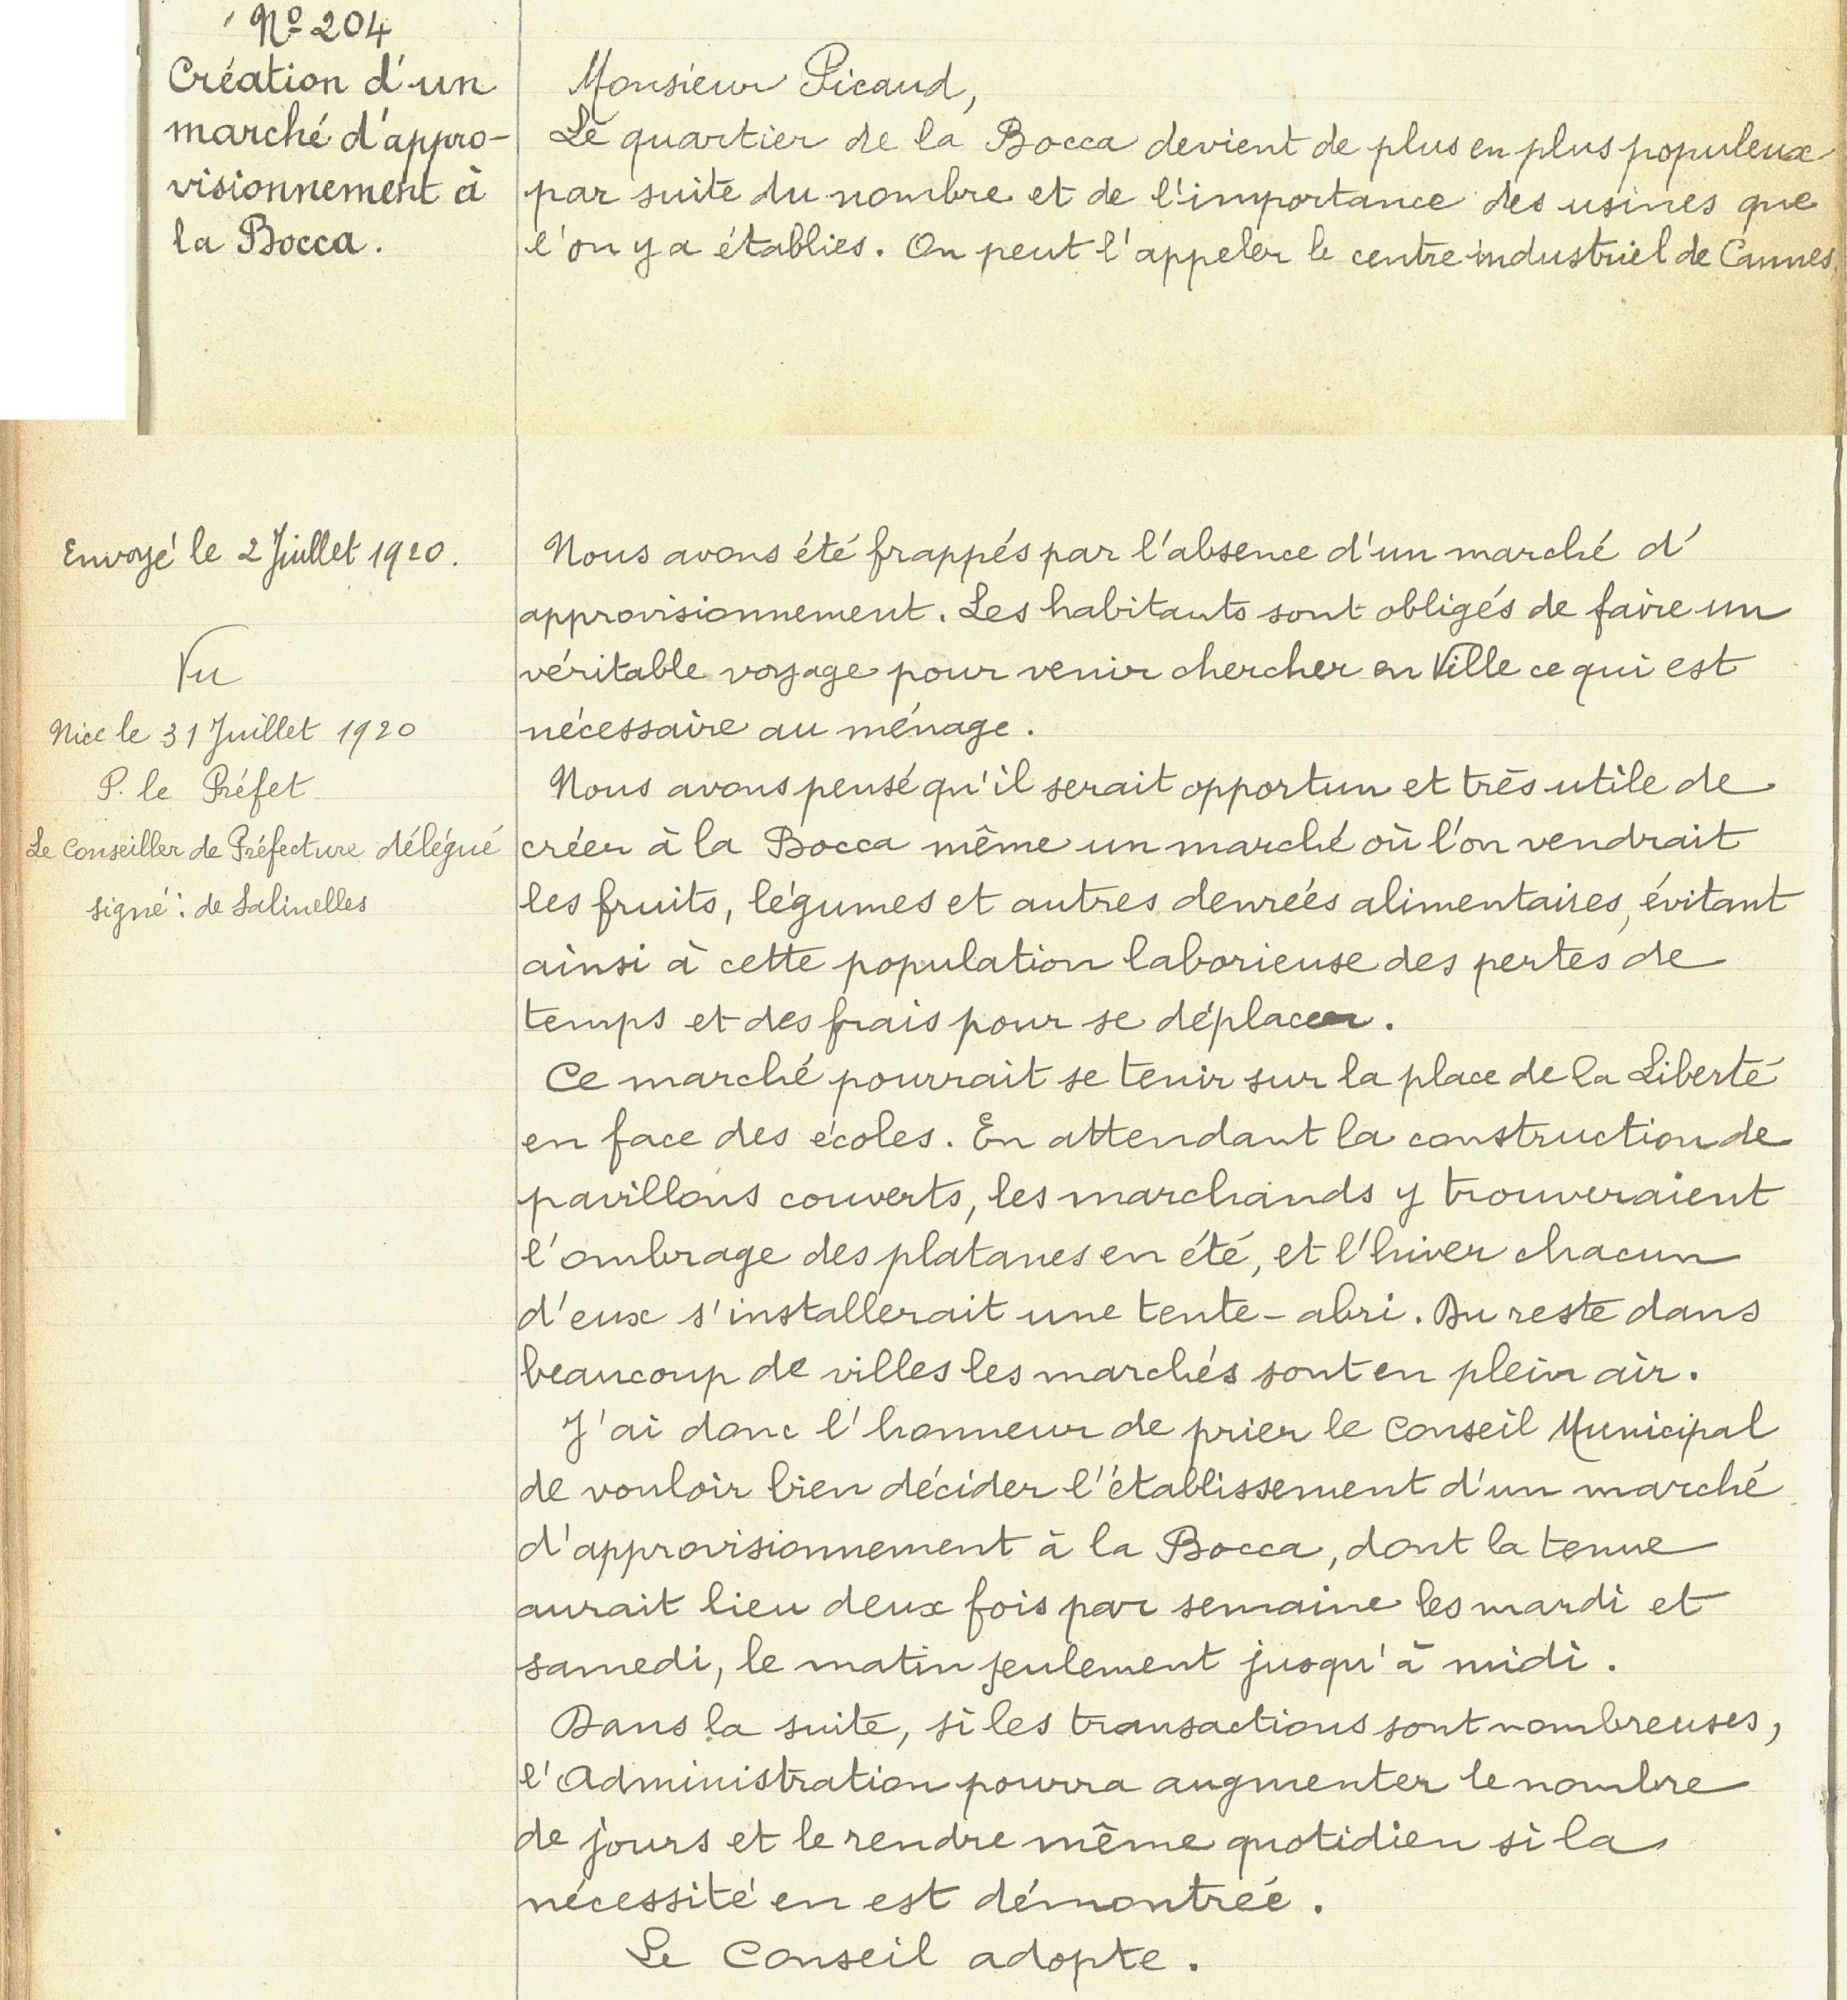 No 204
Création d'un
marché d'appro-
visionnement à
la Bocca.
Monsieur Picaud,
Le quartier de la Bocca devient de plus en plus populeux
par suite du nombre et de l'importance des usines que
l'on y a établies. On peut l'appeler le centre industriel de Cannes.
Envoyé le 2 Juillet 1920.
Vu
Nice le 31 Juillet 1920
P. le Préfet
Le Conseiller de Préfecture délégué
signé: de Salinelles
Nous avons été frappés par l'absence d'un marché d'
approvisionnement. Les habitants sont obligés de faire un
véritable voyage pour venir chercher en Ville ce qui est
nécessaire au ménage.
Nous avons pensé qu'il serait opportun et très utile de
créer à la Bocca même un marché où l'on vendrait
les fruits, légumes et autres denrées alimentaires, évitant
ainsi à cette population laborieuse des pertes de
temps et des frais pour se déplacer.
Ce marché pourrait se tenir sur la place de la Liberté
en face des écoles. En attendant la construction de
pavillons couverts, les marchands y trouveraient
l'ombrage des platanes en été, et l'hiver chacun
d'eux s'installerait une tente-abri. Du reste dans
beaucoup de villes les marchés sont en plein air.
J'ai donc l'honneur de prier le Conseil Municipal
de vouloir bien décider l'établissement d'un marché
d'approvisionnement à la Bocca, dont la tenue
aurait lieu deux fois par semaine les mardi et
samedi, le matin seulement jusqu'à midi.
Dans la suite, si les transactions sont nombreuses,
l'Administration pourra augmenter le nombre
de jours et le rendre même quotidien si la
nécessité en est démontrée.
Le Conseil adopte.